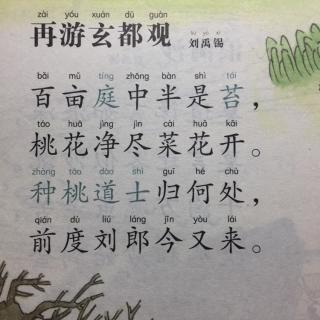 zài yóu xuán dū guàn
再游玄都观 
liú yǔ xī
刘禹锡
bǎi mǔ tíng zhōng bàn shì tái
百亩庭中半是苔，
táo huā jìng jìn cài huā kāi
桃花净尽菜花开。
zhòng táo dào shì guī hé chù
种桃道士归何处，
qián dù liú láng jīn yòu lái
前度刘郎今又来。